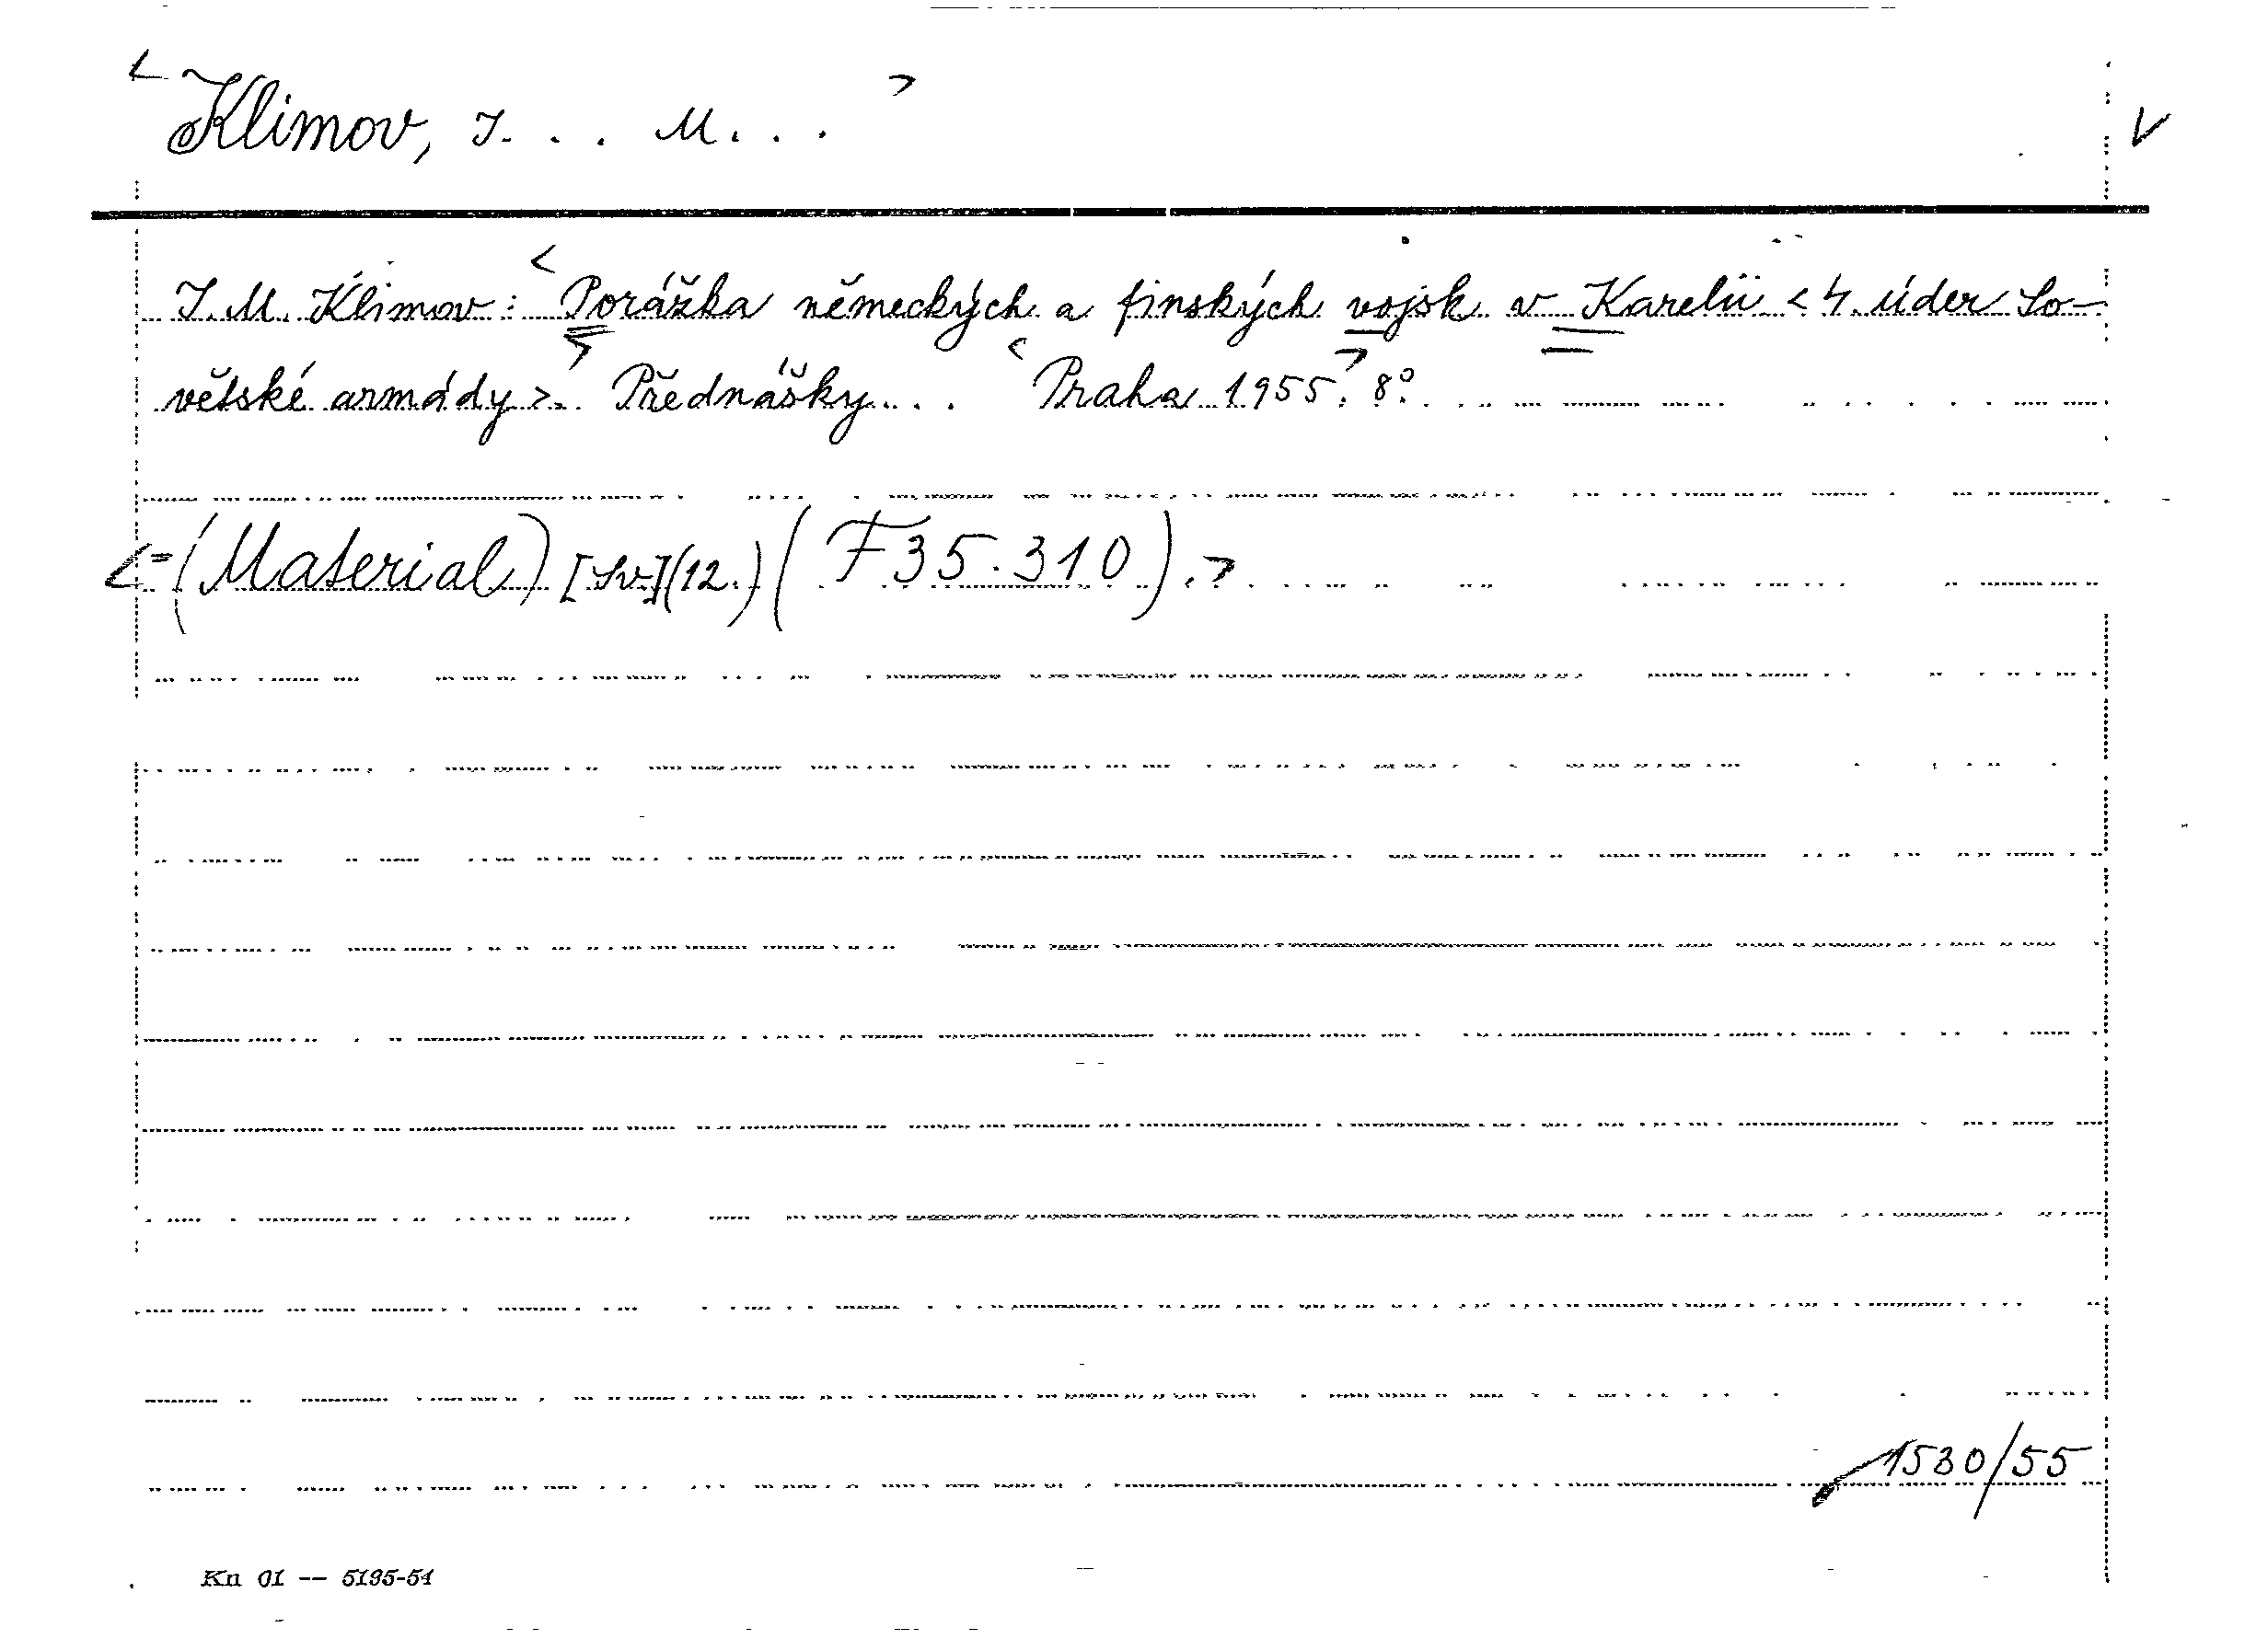 < Klimov, I. . . M. . . >
V
I. M. Klimov: < Porážka německých a finských vojsk v Karelii < 4. úder So-
větské armády >. > Přednášky. . . < Praha 1955 >. 8°.
< = (Material) [Sv.] (12.) (F 35.310). >
1530/55
Kn 01 -- 5195-54